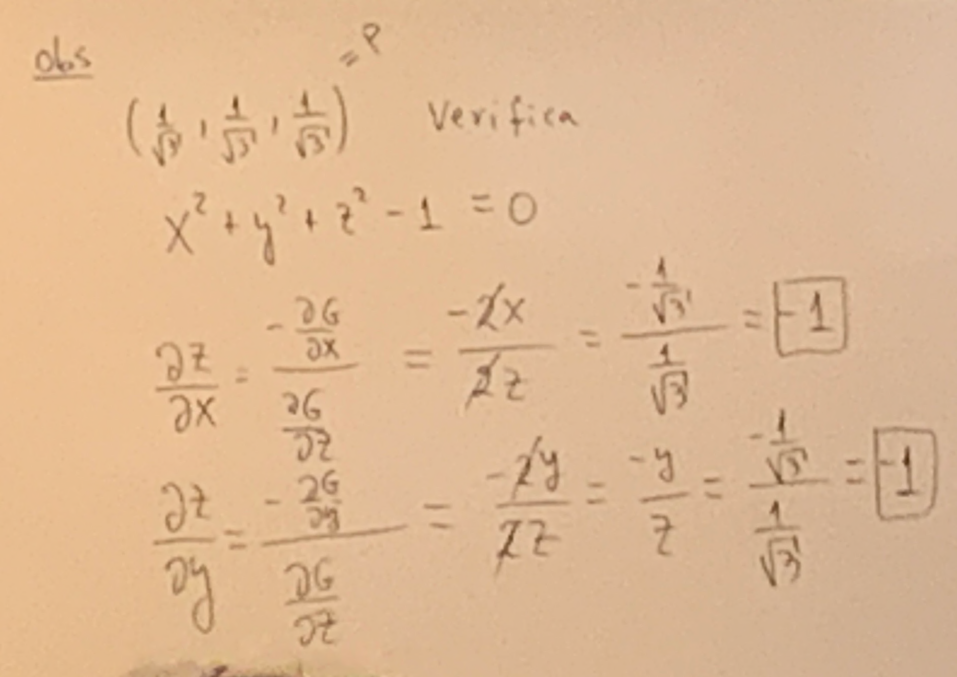 obs
(1/√3, 1/√3, 1/√3) = P Verifica
x² + y² + z² - 1 = 0
∂z/∂x = (-∂G/∂x)/(∂G/∂z) = -2x/2z = (-1/√3)/(1/√3) = -1
∂z/∂y = (-∂G/∂y)/(∂G/∂z) = -2y/2z = -y/z = (-1/√3)/(1/√3) = -1